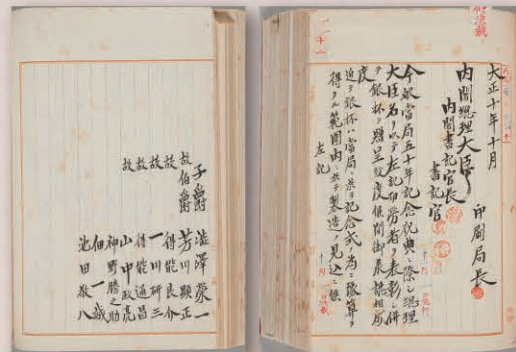 要決裁
大正十年十月
印刷局長
内閣總理大臣
内閣書記官長
書記官
今般當局五十年記念祝典ニ際シ總理
大臣名ヲ以テ左記功勞者ヲ表彰シ併
テ銀杯ヲ贈呈致度候間御裁認相成
度
追テ銀杯ハ當局ニ於テ記念式ノ為ニ豫算ヲ
得タル範圍内ニ於テ製造ノ見込ニ候
左記
子爵 澁澤榮一
故伯爵 芳川顯正
故 得能良介
故 一川研三
故 得能通昌
故 山中政亮
神野勝之助
佃一誠
池田敬八